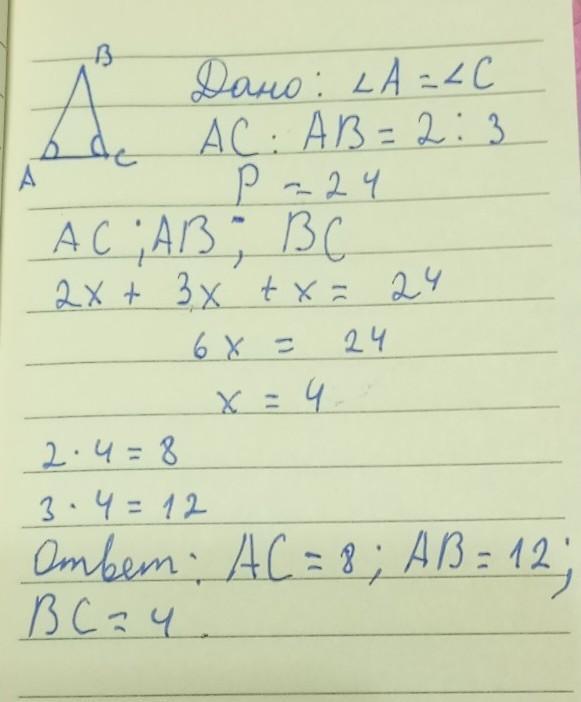 B
Дано: ∠A = ∠C
AC : AB = 2 : 3
A
C
P = 24
AC ; AB ; BC
2x + 3x + x = 24
6x = 24
x = 4
2 · 4 = 8
3 · 4 = 12
Ответ: AC = 8 ; AB = 12 ;
BC = 4 .